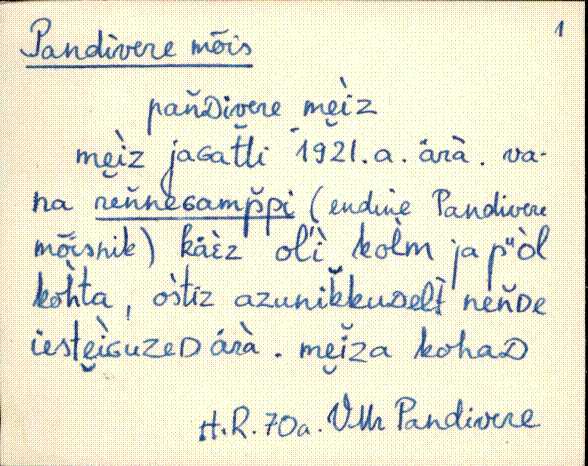 1
Pandivere mõis
pan̆Divere mẹ̀iz
mẹ̀iz jaGat̆t̆i 1921. a. ärà. va-
na ren̆neGamp̆pi (endine Pandivere
mõisnik) käèz ol'ì kolm ja pᵘòl
kohta, òstìz azunik̆kuDelt nen̆De
iestẹ̀iGuzeD ärà. mẹ̆iza kohaD
H.R. 70a. VMr Pandivere